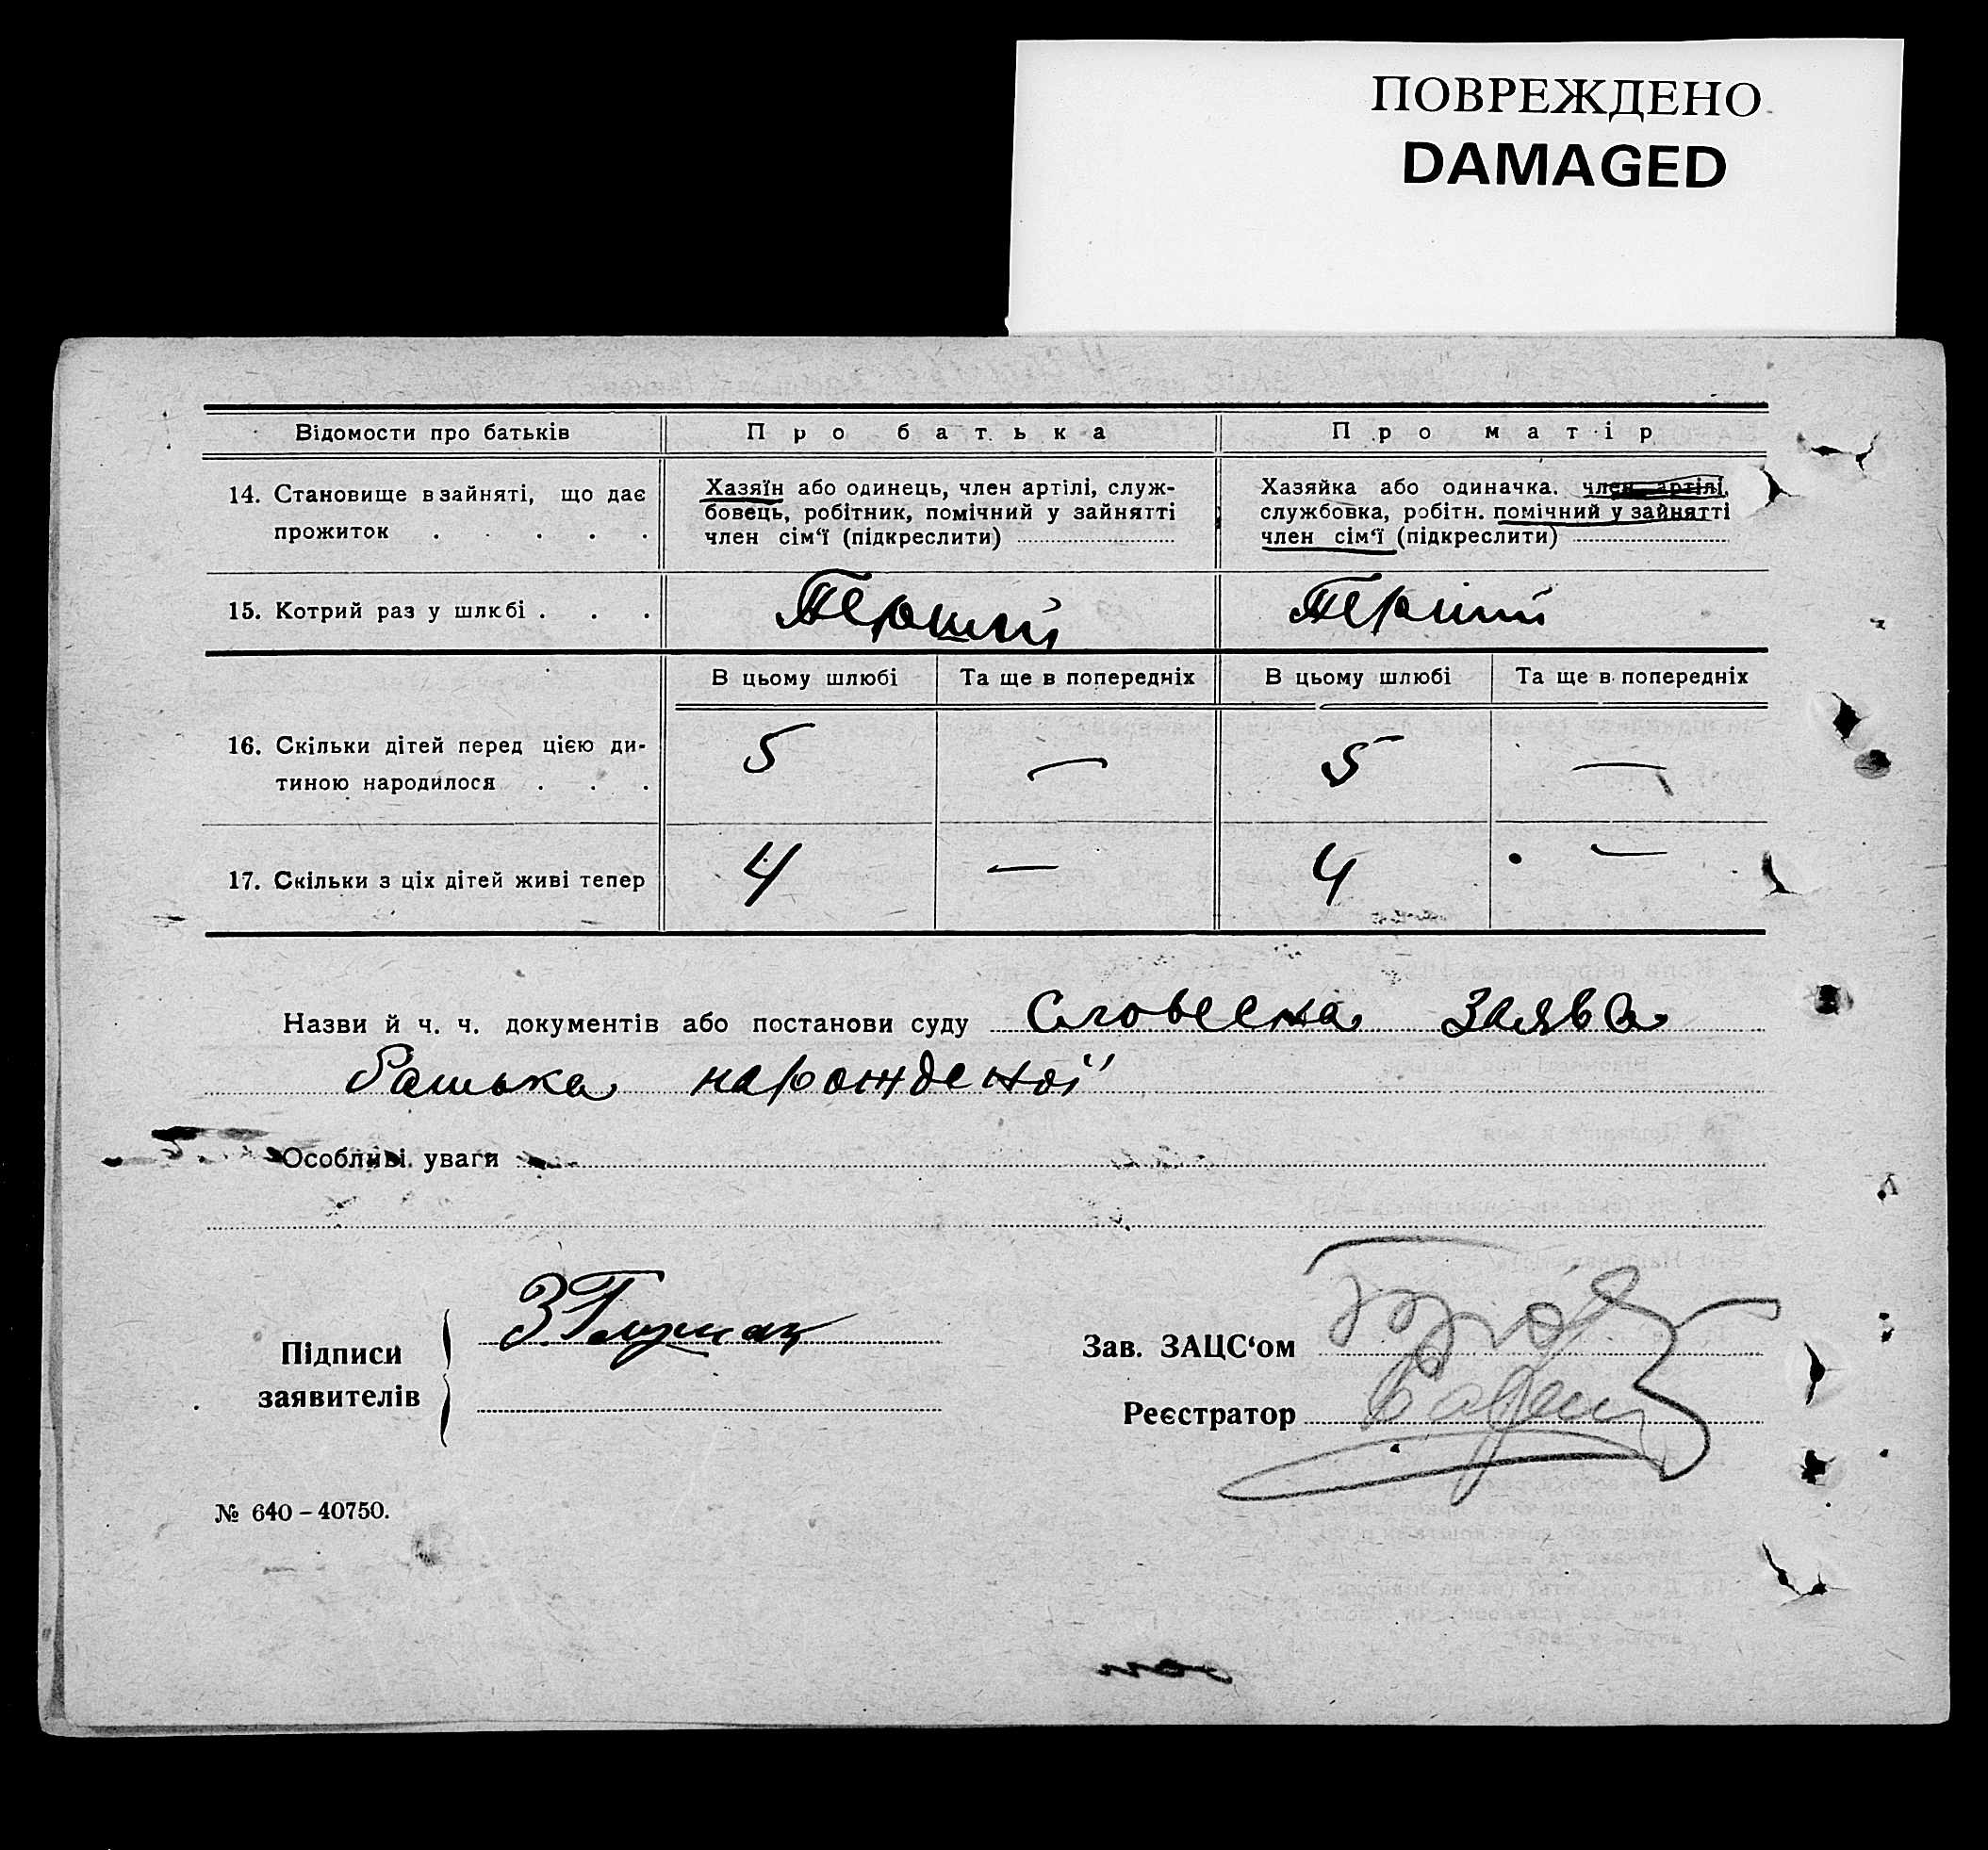 ПОВРЕЖДЕНО
DAMAGED
Відомости про батьків
Про батька
Про матір
14. Становище в зайняті, що дає
прожиток . . . . .
Хазяїн або одинець, член артілі, служ-
бовець, робітник, помічний у зайнятті
член сім‘ї (підкреслити)
Хазяйка або одиначка, член артілі,
службовка, робітн. помічний у зайнятті
член сім‘ї (підкреслити)
15. Котрий раз у шлюбі . . .
Перший
Перший
В цьому шлюбі
Та ще в попередніх
В цьому шлюбі
Та ще в попередніх
16. Скільки дітей перед цією ди-
тиною народилося . . .
5 — 5 —
17. Скільки з ціх дітей живі тепер
4 — 4 —
Назви й ч. ч. документів або постанови суду Словесна заява
батька нарожденої
Особливі уваги
Підписи
заявителів
З.
Зав. ЗАЦС‘ом
Реєстратор
№ 640 – 40750.